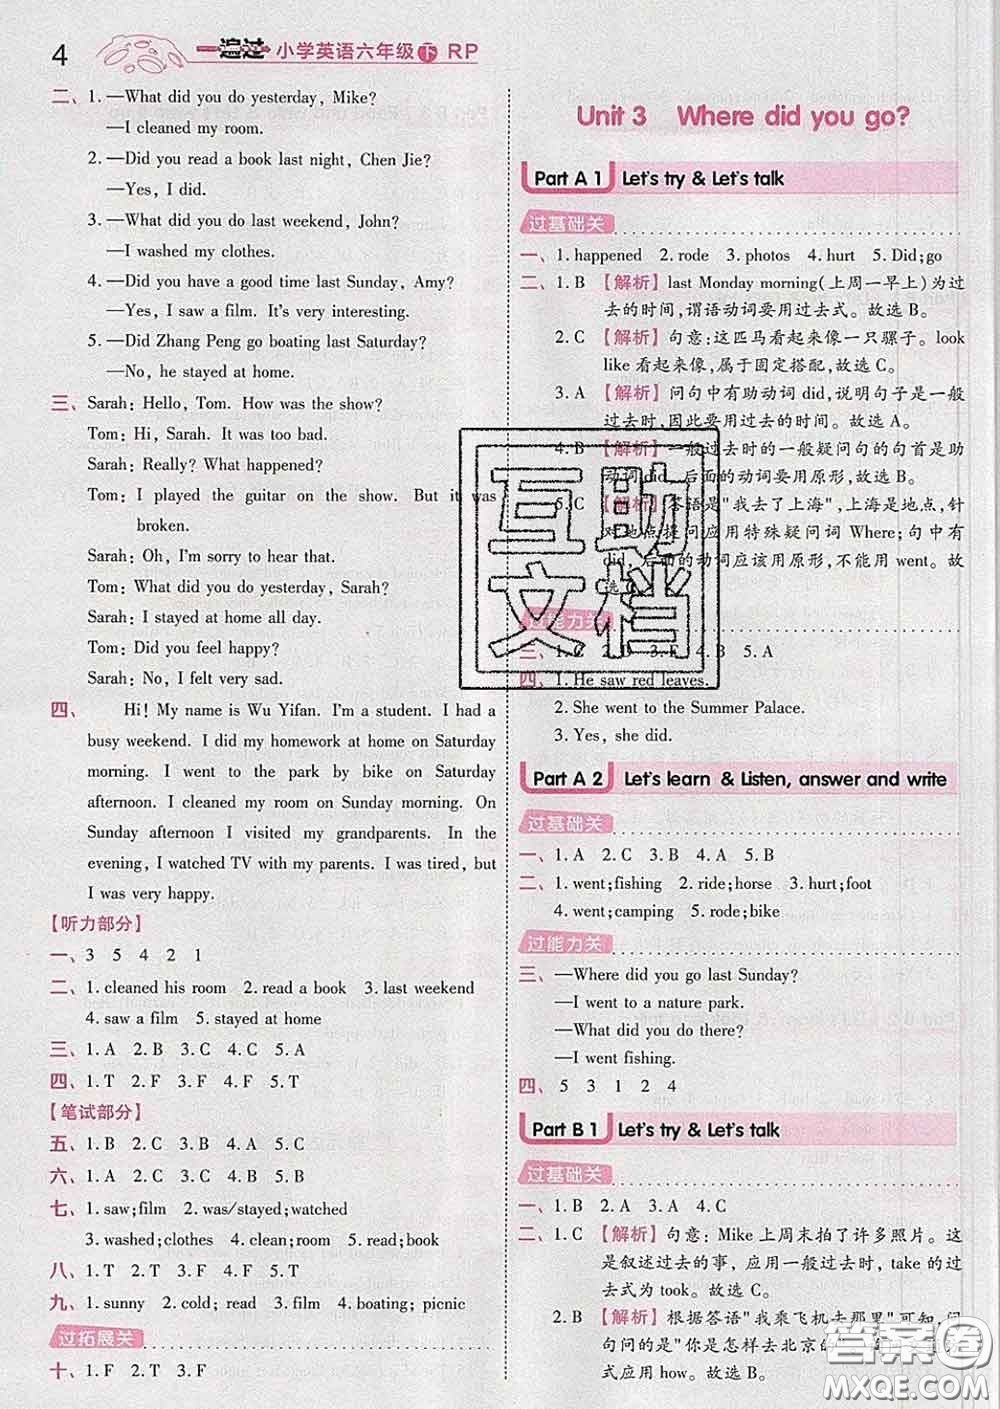 4 一遍过 小学英语六年级下 RP
二、1. —What did you do yesterday, Mike?
—I cleaned my room.
2. —Did you read a book last night, Chen Jie?
—Yes, I did.
3. —What did you do last weekend, John?
—I washed my clothes.
4. —Did you have a good time last Sunday, Amy?
—Yes, I saw a film. It's very interesting.
5. —Did Zhang Peng go boating last Saturday?
—No, he stayed at home.
三、Sarah: Hello, Tom. How was the show?
Tom: Hi, Sarah. It was too bad.
Sarah: Really? What happened?
Tom: I played the guitar on the show. But it was
broken.
Sarah: Oh, I'm sorry to hear that.
Tom: What did you do yesterday, Sarah?
Sarah: I stayed at home all day.
Tom: Did you feel happy?
Sarah: No, I felt very sad.
四、Hi! My name is Wu Yifan. I'm a student. I had a
busy weekend. I did my homework at home on Saturday
morning. I went to the park by bike on Saturday
afternoon. I cleaned my room on Sunday morning. On
Sunday afternoon I visited my grandparents. In the
evening, I watched TV with my parents. I was tired, but
I was very happy.
【听力部分】
一、3 5 4 2 1
二、1. cleaned his room 2. read a book 3. last weekend
4. saw a film 5. stayed at home
三、1. A 2. B 3. C 4. C 5. A
四、1. T 2. F 3. F 4. F 5. T
【笔试部分】
五、1. B 2. C 3. B 4. A 5. C
六、1. B 2. C 3. A 4. B 5. C
七、1. saw;film 2. was/stayed;watched
3. washed;clothes 4. clean;room 5. read;book
八、1. T 2. T 3. F 4. F 5. T
九、1. sunny 2. cold; read 3. film 4. boating; picnic
过拓展关
十、1. F 2. T 3. F
Unit 3 Where did you go?
Part A 1 Let's try & Let's talk
过基础关
一、1. happened 2. rode 3. photos 4. hurt 5. Did;go
二、1. B 【解析】last Monday morning(上周一早上)为过
去的时间,谓语动词要用过去式。故选 B。
2. C 【解析】句意:这匹马看起来像一只骡子。look
like 看起来像,属于固定搭配,故选 C。
3. A 【解析】问句中有助动词 did,说明句子是一般
过去时,因此要用过去的时间。故选 A。
4. B 【解析】一般过去时的一般疑问句的句首是助
动词 did,后面的动词要用原形,故选 B。
5. C 【解析】答语是"我去了上海",上海是地点,针
对地点提问应用特殊疑问词 Where;句中有
did,后面的动词应该用原形,不能用 went。故
选
过能力关
三、1. C 2. 4. B 5. A
四、1. He saw red leaves.
2. She went to the Summer Palace.
3. Yes, she did.
Part A 2 Let's learn & Listen, answer and write
过基础关
一、1. A 2. C 3. B 4. A 5. B
二、1. went;fishing 2. ride;horse 3. hurt;foot
4. went;camping 5. rode;bike
过能力关
三、—Where did you go last Sunday?
—I went to a nature park.
—What did you do there?
—I went fishing.
四、5 3 1 2 4
Part B 1 Let's try & Let's talk
过基础关
一、1. B 2. A 3. A 4. C
二、1. C 【解析】句意:Mike 上周末拍了许多照片。这
是叙述过去的事,应用一般过去时,take 的过
去式为 took。故选 C。
2. B 【解析】根据答语"我乘飞机去那里"可知,问
句问的是"你是怎样去北京的
式应用 how。故选 B。
互助
文档
答案圈
MXQE.COM